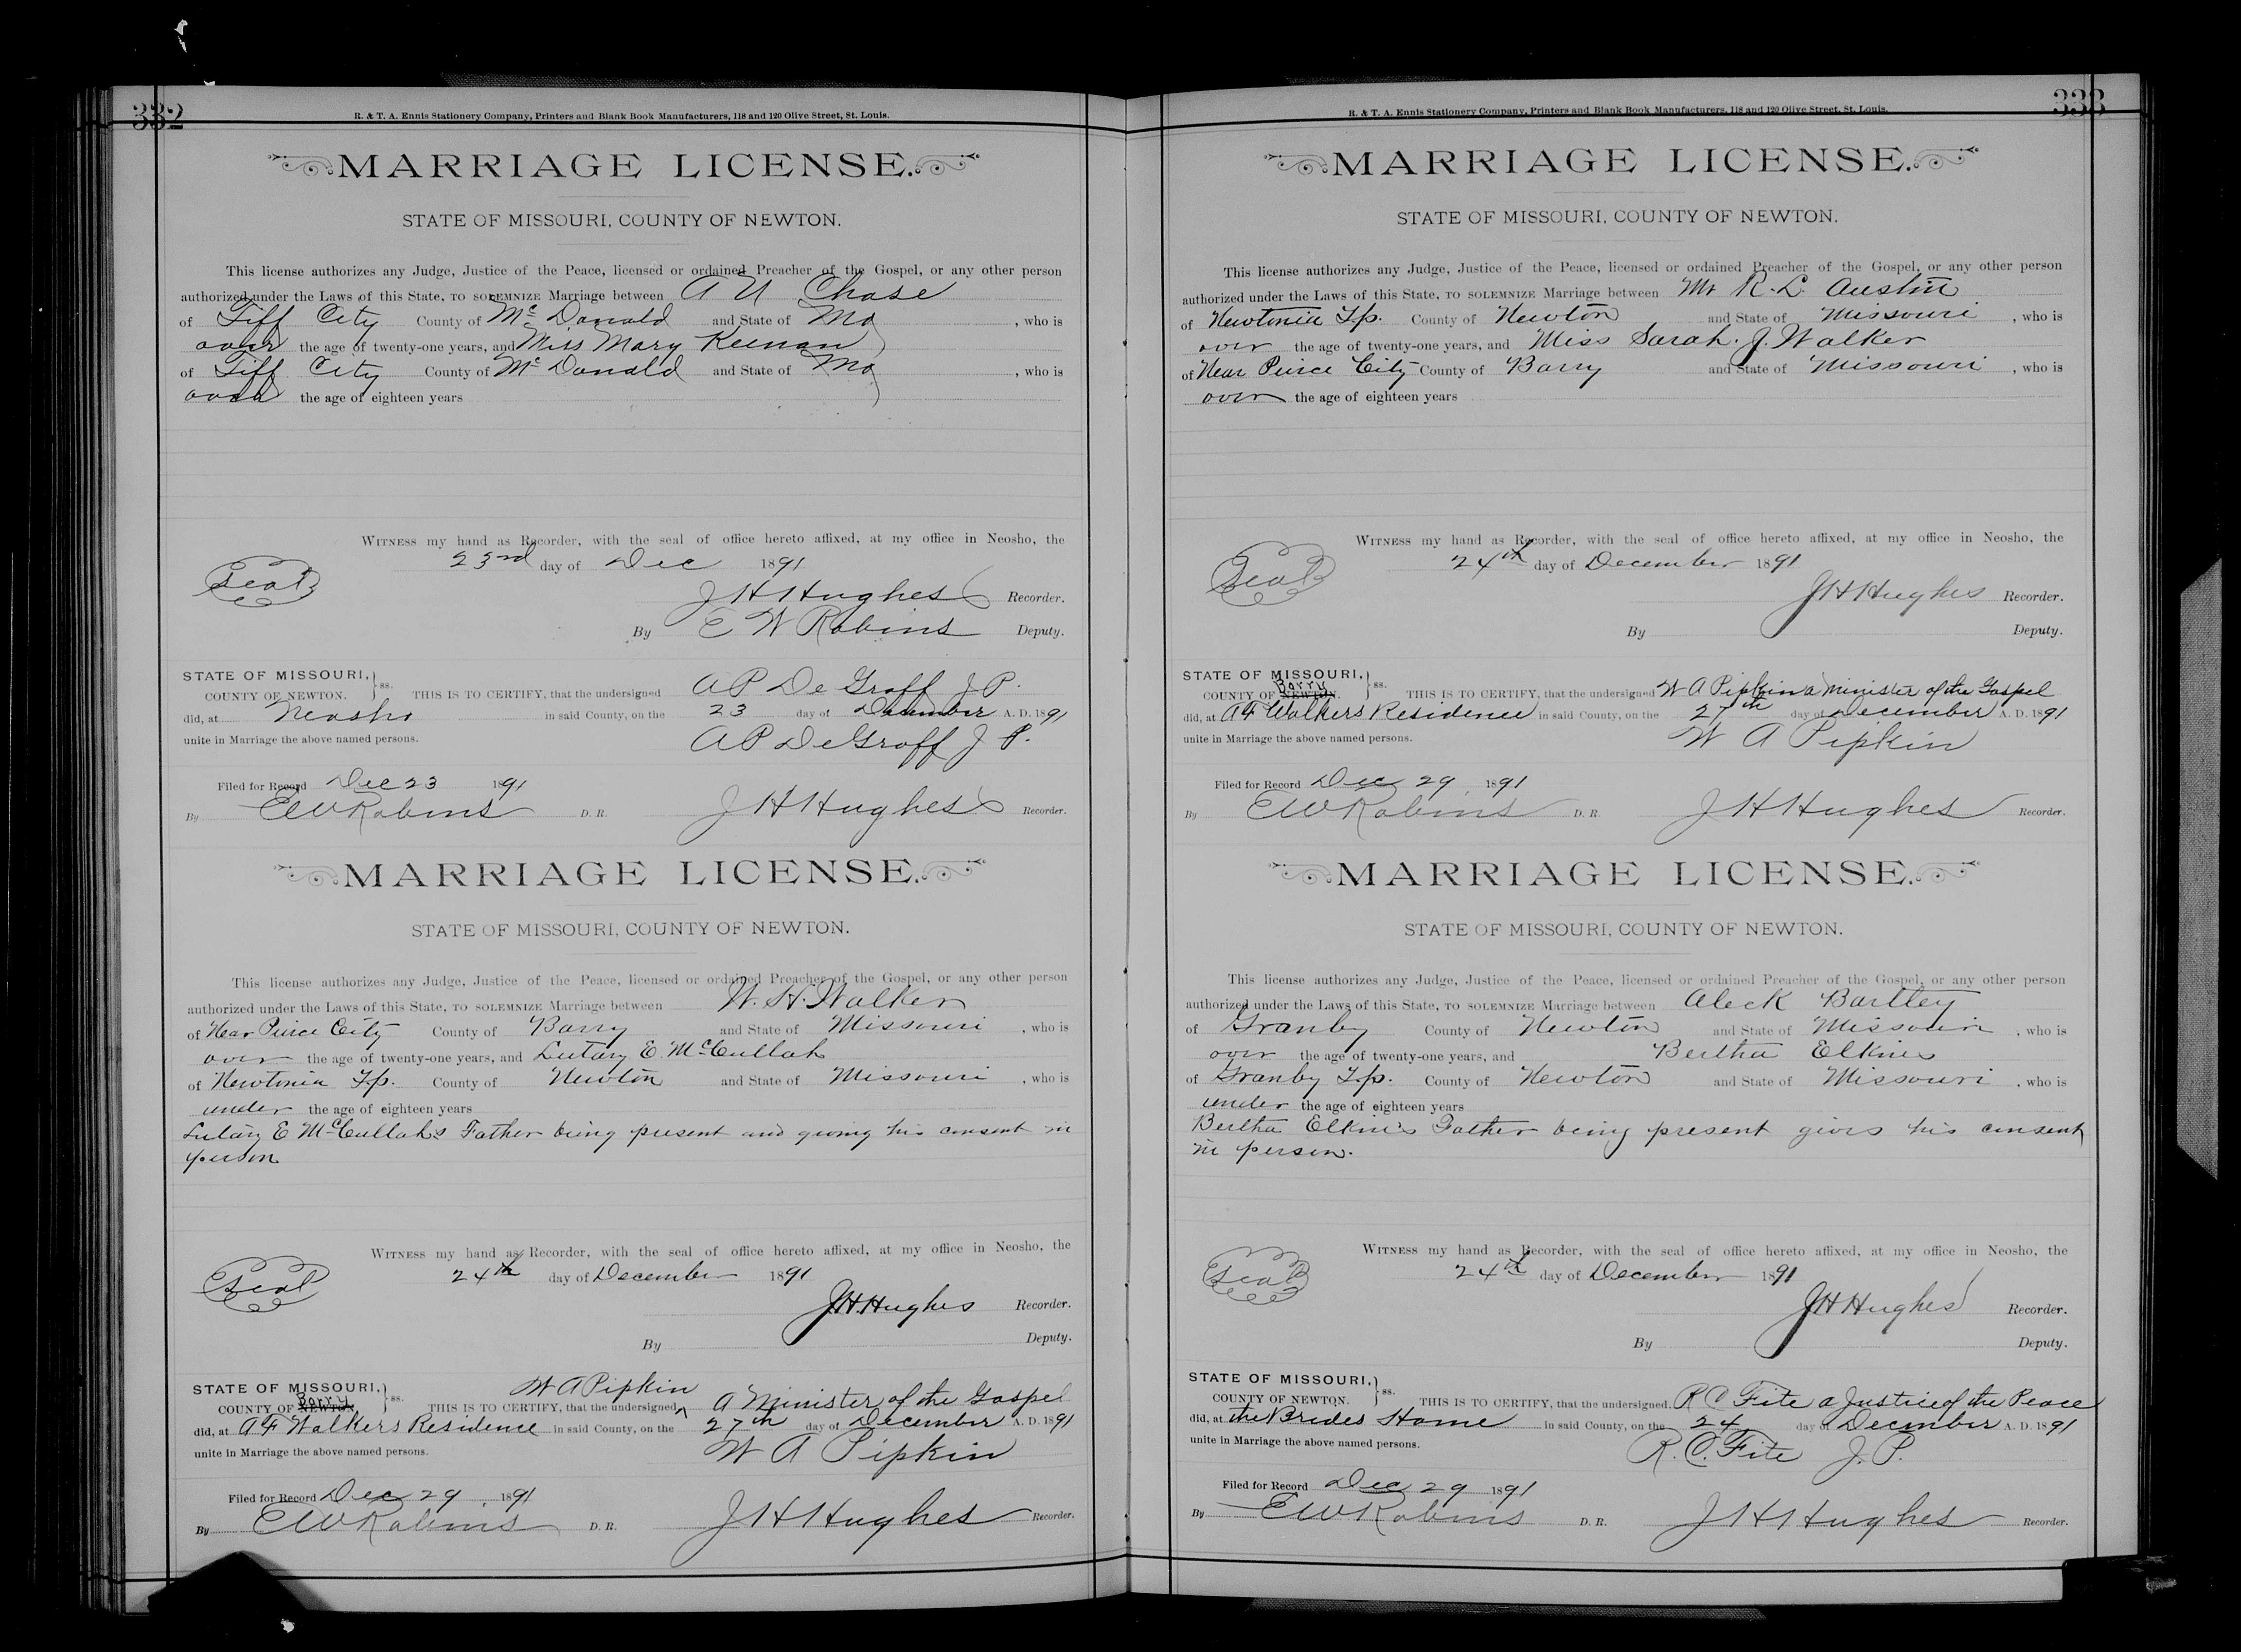 332
R. & T. A. Ennis Stationery Company, Printers and Blank Book Manufacturers, 118 and 120 Olive Street, St. Louis.
MARRIAGE LICENSE.
STATE OF MISSOURI, COUNTY OF NEWTON.
This license authorizes any Judge, Justice of the Peace, licensed or ordained Preacher of the Gospel, or any other person
authorized under the Laws of this State, TO SOLEMNIZE Marriage between A U Chase
of Tiff City County of McDonald and State of Mo , who is
over the age of twenty-one years, and Miss Mary Keenan
of Tiff City County of McDonald and State of Mo , who is
over the age of eighteen years
WITNESS my hand as Recorder, with the seal of office hereto affixed, at my office in Neosho, the
23rd day of Dec 1891
Seal
J H Hughes Recorder.
By E W Robins Deputy.
STATE OF MISSOURI,
COUNTY OF NEWTON. } ss. THIS IS TO CERTIFY, that the undersigned A P De Groff J P.
did, at Neosho in said County, on the 23 day of December A. D. 1891
unite in Marriage the above named persons. A P DeGroff J P.
Filed for Record Dec 23 1891
By E W Robins D. R. J H Hughes Recorder.
MARRIAGE LICENSE.
STATE OF MISSOURI, COUNTY OF NEWTON.
This license authorizes any Judge, Justice of the Peace, licensed or ordained Preacher of the Gospel, or any other person
authorized under the Laws of this State, TO SOLEMNIZE Marriage between W. H. Walker
of Near Peirce City County of Barry and State of Missouri , who is
over the age of twenty-one years, and Lutary E. McCullah
of Newtonia Tp. County of Newton and State of Missouri , who is
under the age of eighteen years
Lutary E McCullah's Father being present and giving his consent in
person
WITNESS my hand as Recorder, with the seal of office hereto affixed, at my office in Neosho, the
24th day of December 1891
Seal
J.H. Hughes Recorder.
By Deputy.
STATE OF MISSOURI, W A Pipkin
Barry
COUNTY OF NEWTON. } ss. THIS IS TO CERTIFY, that the undersigned ^ A Minister of the Gospel
did, at A F Walkers Residence in said County, on the 27th day of December A. D. 1891
unite in Marriage the above named persons. W A Pipkin
Filed for Record Dec 29, 1891
By E W Robins D. R. J H Hughes Recorder.
333
R. & T. A. Ennis Stationery Company, Printers and Blank Book Manufacturers, 118 and 120 Olive Street, St. Louis.
MARRIAGE LICENSE.
STATE OF MISSOURI, COUNTY OF NEWTON.
This license authorizes any Judge, Justice of the Peace, licensed or ordained Preacher of the Gospel, or any other person
authorized under the Laws of this State, TO SOLEMNIZE Marriage between Mr R. L. Austin
of Newtonia Tp. County of Newton and State of Missouri , who is
over the age of twenty-one years, and Miss Sarah. J. Walker
of Near Peirce City County of Barry and State of Missouri , who is
over the age of eighteen years
WITNESS my hand as Recorder, with the seal of office hereto affixed, at my office in Neosho, the
24th day of December 1891
Seal
J H Hughes Recorder.
By Deputy.
STATE OF MISSOURI,
Barry
COUNTY OF NEWTON. } ss. THIS IS TO CERTIFY, that the undersigned W A Pipkin a Minister of the Gospel
did, at A F Walkers Residence in said County, on the 27th day of December A. D. 1891
unite in Marriage the above named persons. W A Pipkin
Filed for Record Dec 29, 1891
By E W Robins D. R. J H Hughes Recorder.
MARRIAGE LICENSE.
STATE OF MISSOURI, COUNTY OF NEWTON.
This license authorizes any Judge, Justice of the Peace, licensed or ordained Preacher of the Gospel, or any other person
authorized under the Laws of this State, TO SOLEMNIZE Marriage between Aleck Bartley
of Granby County of Newton and State of Missouri , who is
over the age of twenty-one years, and Bertha Elkins
of Granby Tp. County of Newton and State of Missouri , who is
under the age of eighteen years
Bertha Elkin's Father being present gives his consent
in person.
WITNESS my hand as Recorder, with the seal of office hereto affixed, at my office in Neosho, the
24th day of December 1891
Seal
J H Hughes Recorder.
By Deputy.
STATE OF MISSOURI,
COUNTY OF NEWTON. } ss. THIS IS TO CERTIFY, that the undersigned R C Fite a Justice of the Peace
did, at the Brides Home in said County, on the 24 day of December A. D. 1891
unite in Marriage the above named persons. R. C. Fite J. P.
Filed for Record Dec 29 1891
By E W Robins D. R. J H Hughes Recorder.